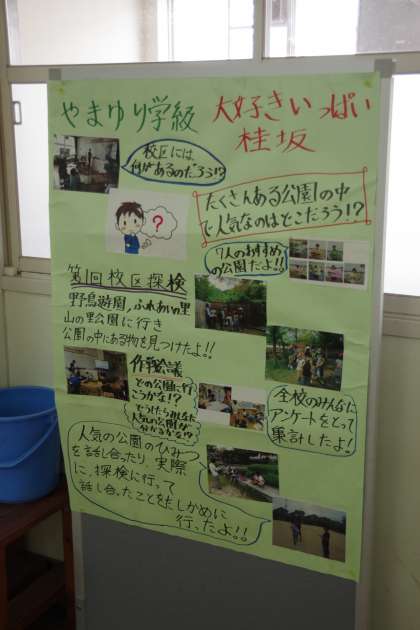 やまゆり学級
大好きいっぱい
桂坂
校区には
何があるのだろう!?
たくさんある公園の中
で人気なのはどこだろう!?
7人のおすすめ
の公園だよ!!
第1回校区探検
野鳥遊園,ふれあいの里
山の里公園に行き
公園の中にある物を見つけたよ!!
作戦会議
どの公園に行
こうかな!?
どうしたらみんな
人気の公園が
分かるかな!?
全校のみんなに
アンケートをとって
集計したよ!
人気の公園のひみつ
を話し合ったり、実際
に、探検に行って
話し合ったことをたしかめに
行ったよ!!